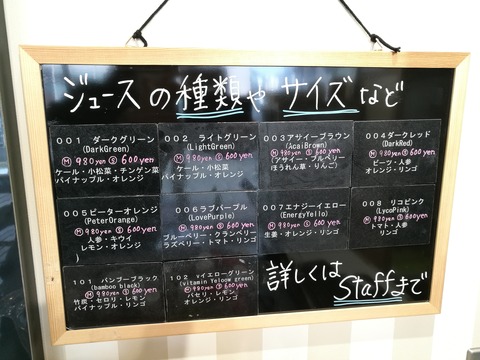 ジュースの種類やサイズなど
001 ダークグリーン
(DarkGreen)
Ⓜ 980yen Ⓢ 600yen
ケール・小松菜・チンゲン菜
パイナップル・オレンジ
002 ライトグリーン
(LightGreen)
Ⓜ 980yen Ⓢ 600yen
ケール・小松菜
パイナップル・オレンジ
003アサイーブラウン
(AcaiBrown)
Ⓜ 980yen Ⓢ 600yen
(アサイー・ブルベリー
ほうれん草・りんご)
004ダークレッド
(DarkRed)
Ⓜ 980yen Ⓢ 600yen
ビーツ・人参
オレンジ・リンゴ
005ピーターオレンジ
(PeterOrange)
Ⓜ 980yen Ⓢ 600yen
人参・キウイ
レモン・オレンジ
006ラブパープル
(LovePurple)
Ⓜ 980yen Ⓢ 600yen
ブルーベリー・クランベリー
ラズベリー・トマト・リンゴ
007エナジーイエロー
(EnergyYello)
Ⓜ 980yen Ⓢ 600yen
生姜・オレンジ・リンゴ
008 リコピンク
(LycoPink)
Ⓜ 980yen Ⓢ 600yen
トマト・人参
リンゴ
101 バンブーブラック
(bamboo black)
Ⓜ 980yen Ⓢ 600yen
竹炭・セロリ・レモン
パイナップル・リンゴ
102 マイエローグリーン
Ⓜ 980yen Ⓢ 600yen
パセリ・レモン
オレンジ・リンゴ
詳しくは
Staffまで